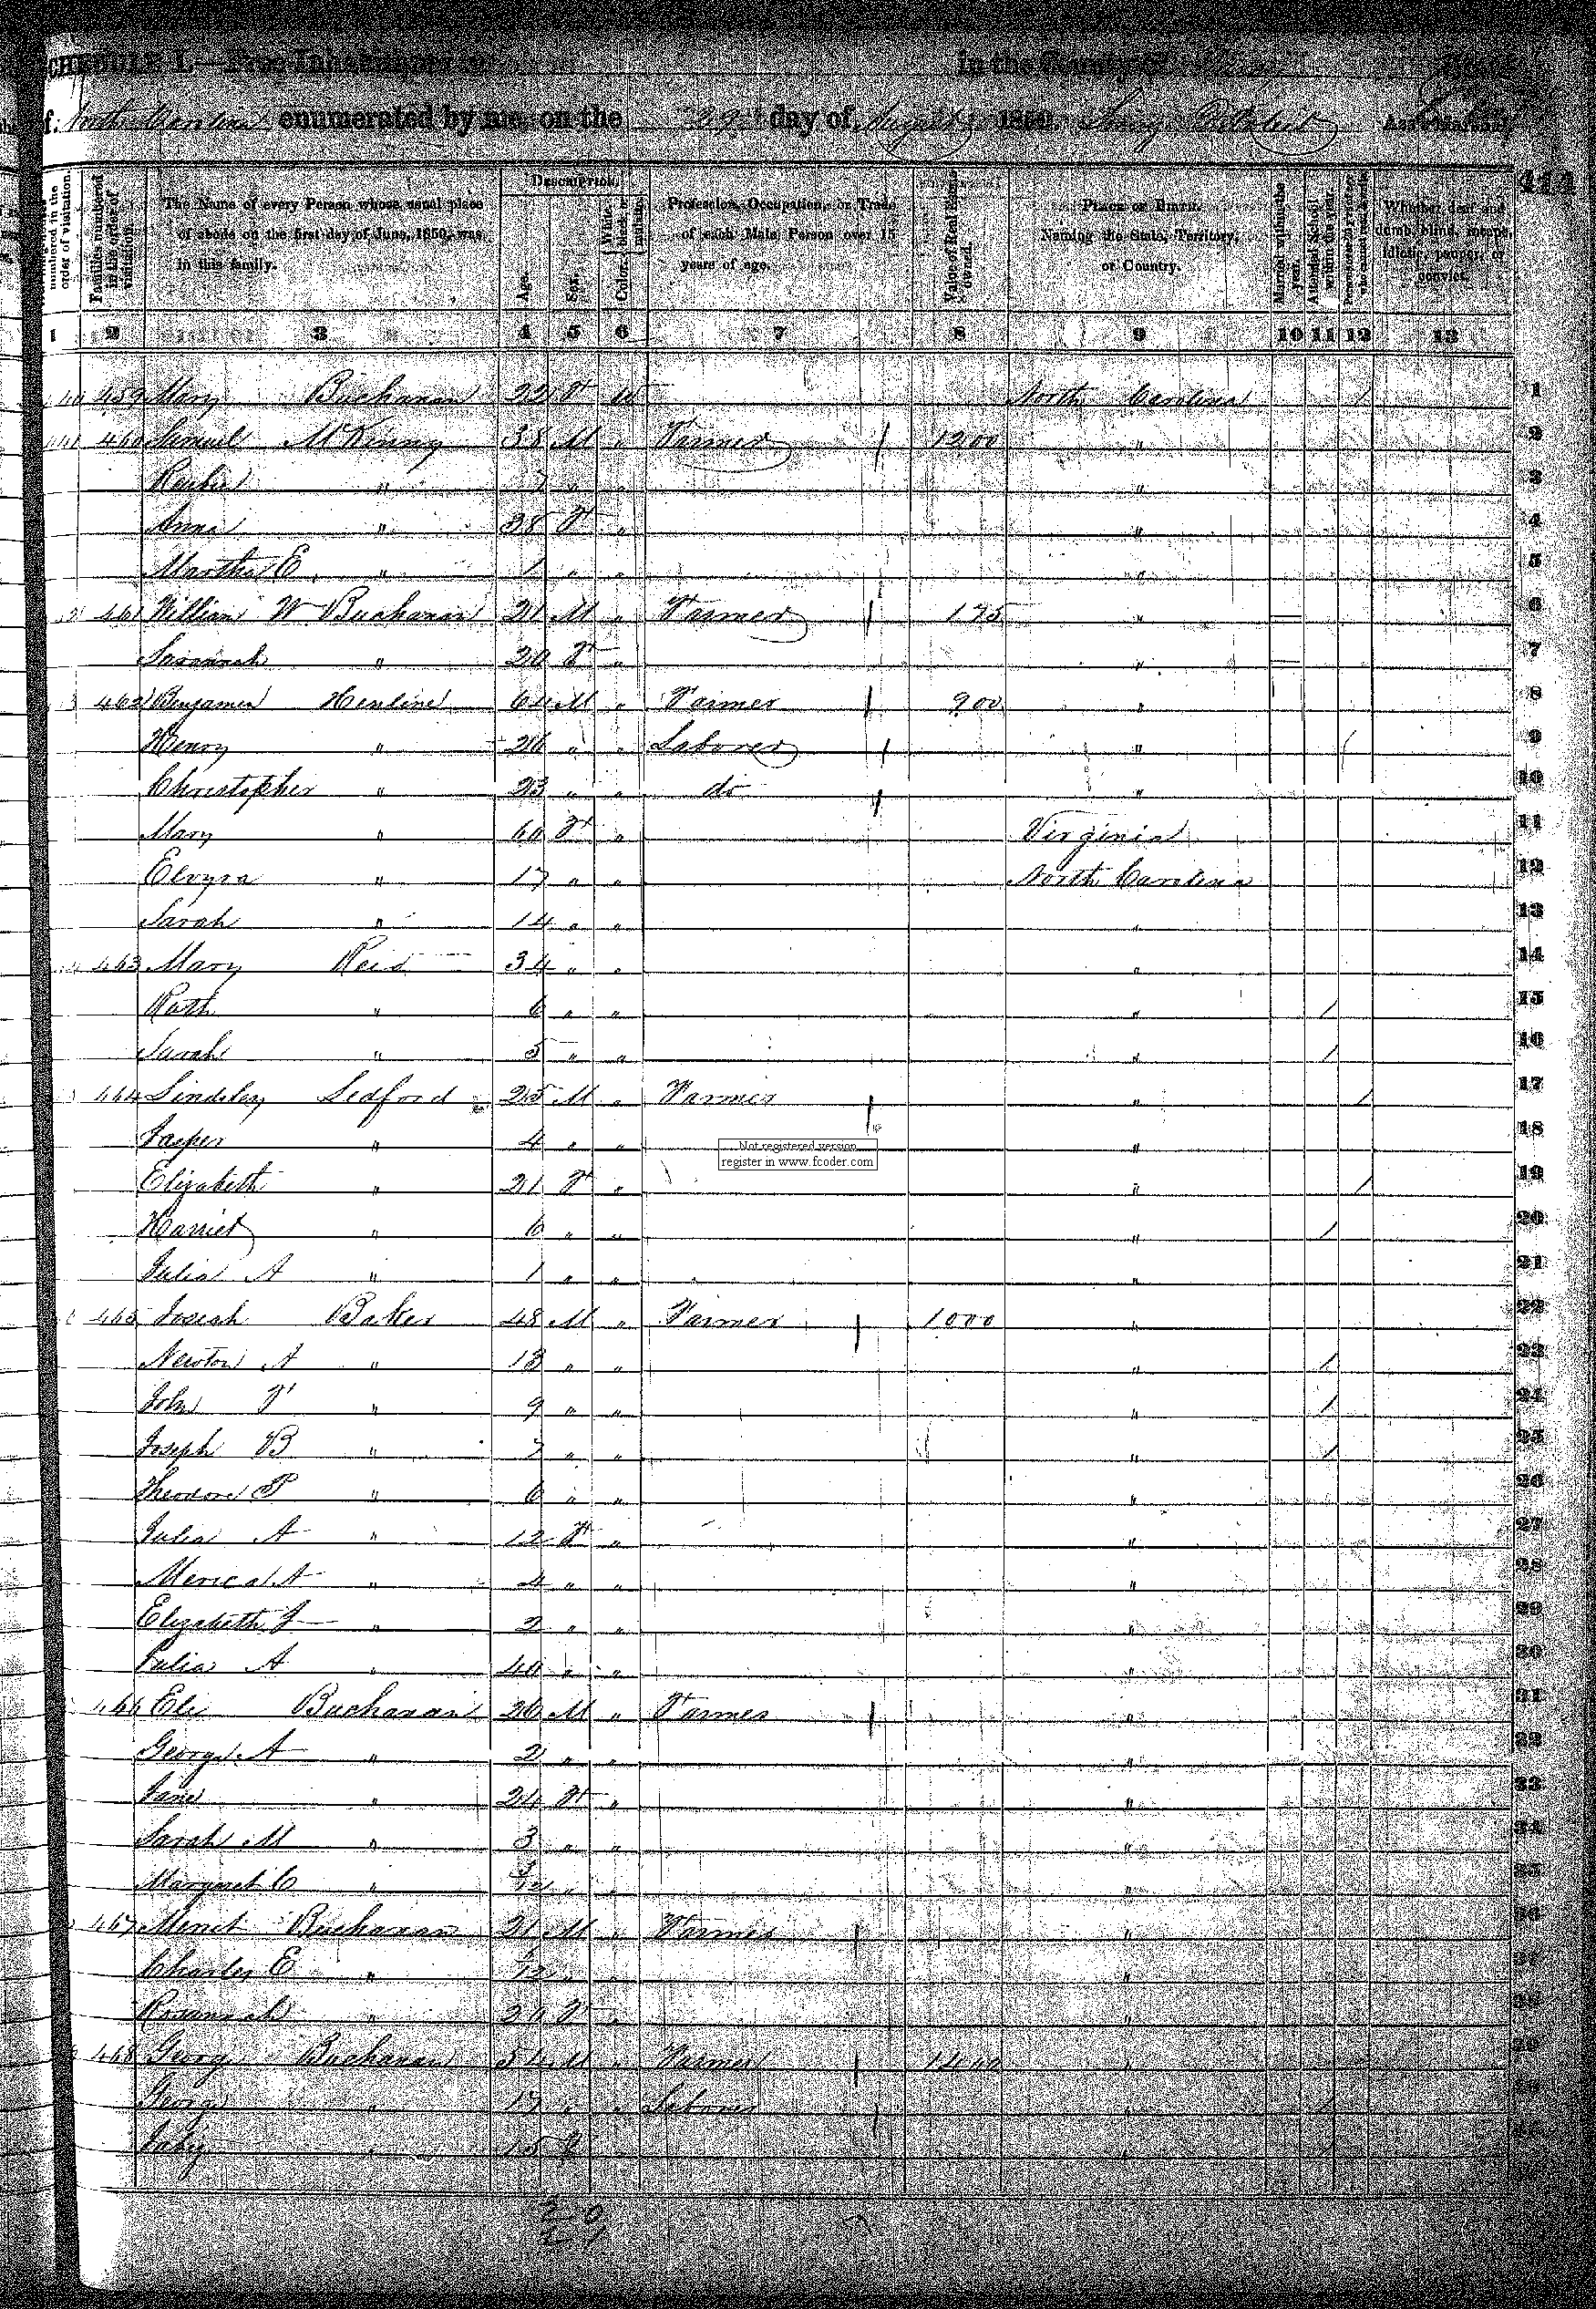 SCHEDULE I.—Free Inhabitants in in the County of
of North Carolina enumerated by me, on the 29 day of August 1850. Ass't Marshal
411
numbered in the order of visitation.
Families numbered in the order of visitation.
The Name of every Person whose usual place of abode on the first day of June, 1850, was in this family.
Description.
Age.
Sex.
Color, White, black, or mulatto.
Profession, Occupation, or Trade of each Male Person over 15 years of age.
Value of Real Estate owned.
Place of Birth. Naming the State, Territory, or Country.
Married within the year.
Attended School within the year.
Persons over 20 y'rs of age who cannot read & write.
Whether deaf and dumb, blind, insane, idiotic, pauper, or convict.
1 2 3 4 5 6 7 8 9 10 11 12 13
459 Mary Buchanan 22 F W North Carolina / 1
460 Samuel McKinny 38 M " Farmer 1200 " 2
" 7 " " " 3
Anna " 38 F " " 4
Martha E " 1 " " " 5
461 William W Buchanan 21 M " Farmer 175 " 6
Savannah " 20 F " " 7
462 Benjamin Henline 64 M " Farmer 900 " 8
Henry " 26 " " Laborer " / 9
Christopher " 23 " " do " 10
Mary " 60 F " Virginia 11
Elvyra " 17 " " North Carolina 12
Sarah " 14 " " " 13
463 Mary Reid 34 " " " 14
Ruth " 6 " " " / 15
Sarah " 5 " " " / 16
464 Lindsley Ledford 25 M " Farmer " / 17
Jasper " 4 " " " 18
Not registered version
register in www.fcoder.com
Elizabeth " 21 F " " / 19
Harriet " 6 " " " / 20
Julia A " 1 " " " 21
465 Josiah Baker 48 M " Farmer 1000 " 22
Newton A " 13 " " " / 23
John F " 9 " " " / 24
Joseph B " 7 " " " / 25
Theodore P " 6 " " " 26
Julia A " 12 F " " 27
A " 4 " " " 28
Elizabeth J " 2 " " " 29
Julia A " 40 " " " 30
466 Eli Buchanan 26 M " Farmer " 31
George A " 2 " " " 32
Jane " 24 F " " 33
Sarah M " 3 " " " 34
Margaret C " 3/12 " " " 35
467 Buchanan 21 M " Farmer " 36
Charles E " " " 37
Rosannah " 20 F " 38
468 Georg Buchanan 54 M " Farmer 1400 " 39
George " 17 " " Laborer " 40
" 15 F "